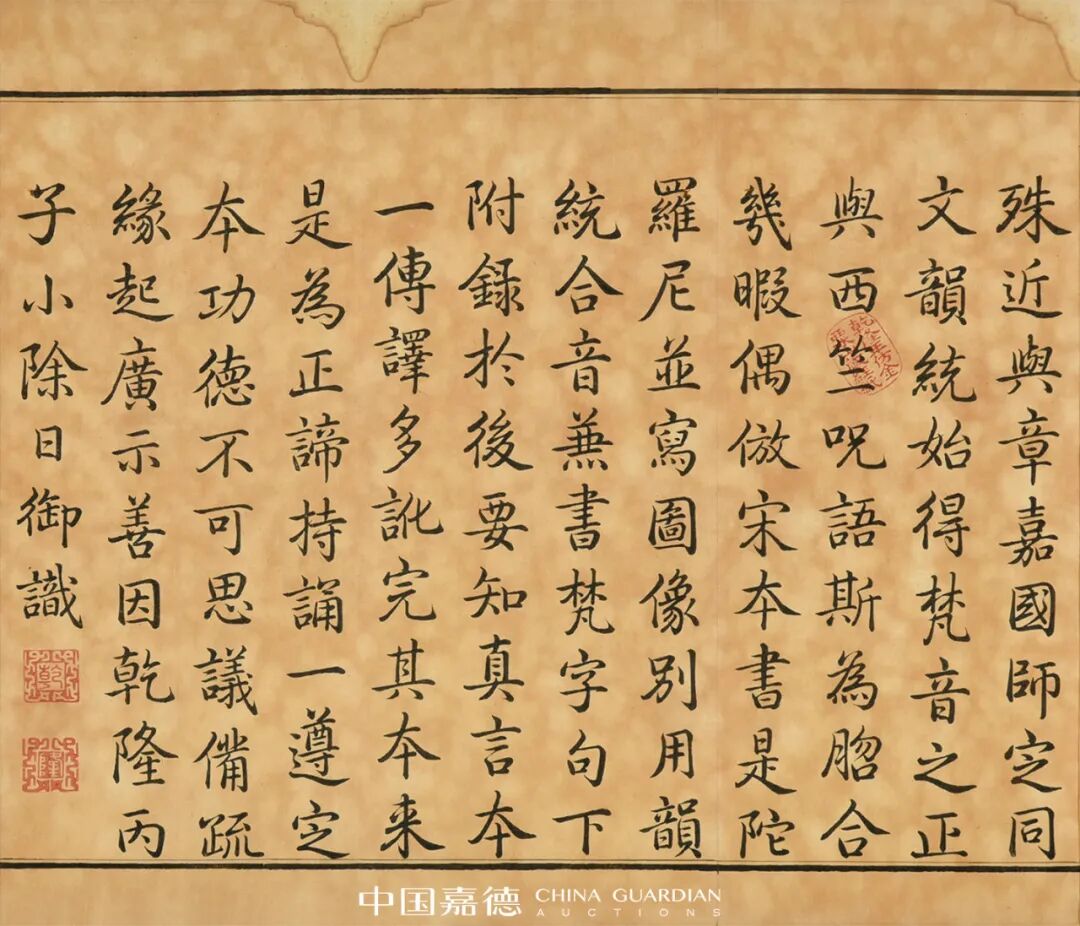 殊近與章嘉國師定同
文韻統始得梵音之正
與西竺呪語斯為脗合
幾暇偶倣宋本書是陀
羅尼並寫圖像別用韻
統合音兼書梵字句下
附録於後要知真言本
一傳譯多訛完其本来
是為正諦持誦一遵定
本功德不可思議備疏
緣起廣示善因乾隆丙
子小除日御識
乾
隆
中国嘉德 CHINA GUARDIAN
AUCTIONS